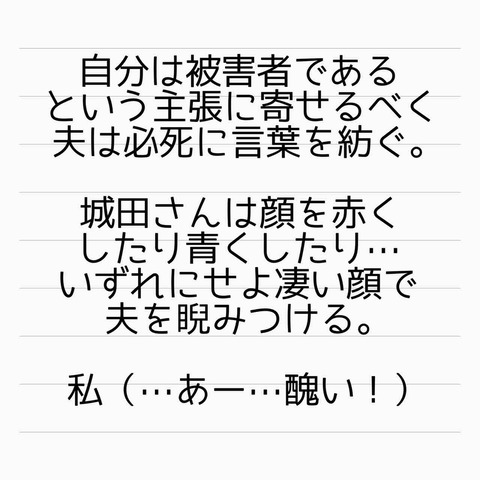 自分は被害者である
という主張に寄せるべく
夫は必死に言葉を紡ぐ。
城田さんは顔を赤く
したり青くしたり…
いずれにせよ凄い顔で
夫を睨みつける。
私（…あー…醜い！）